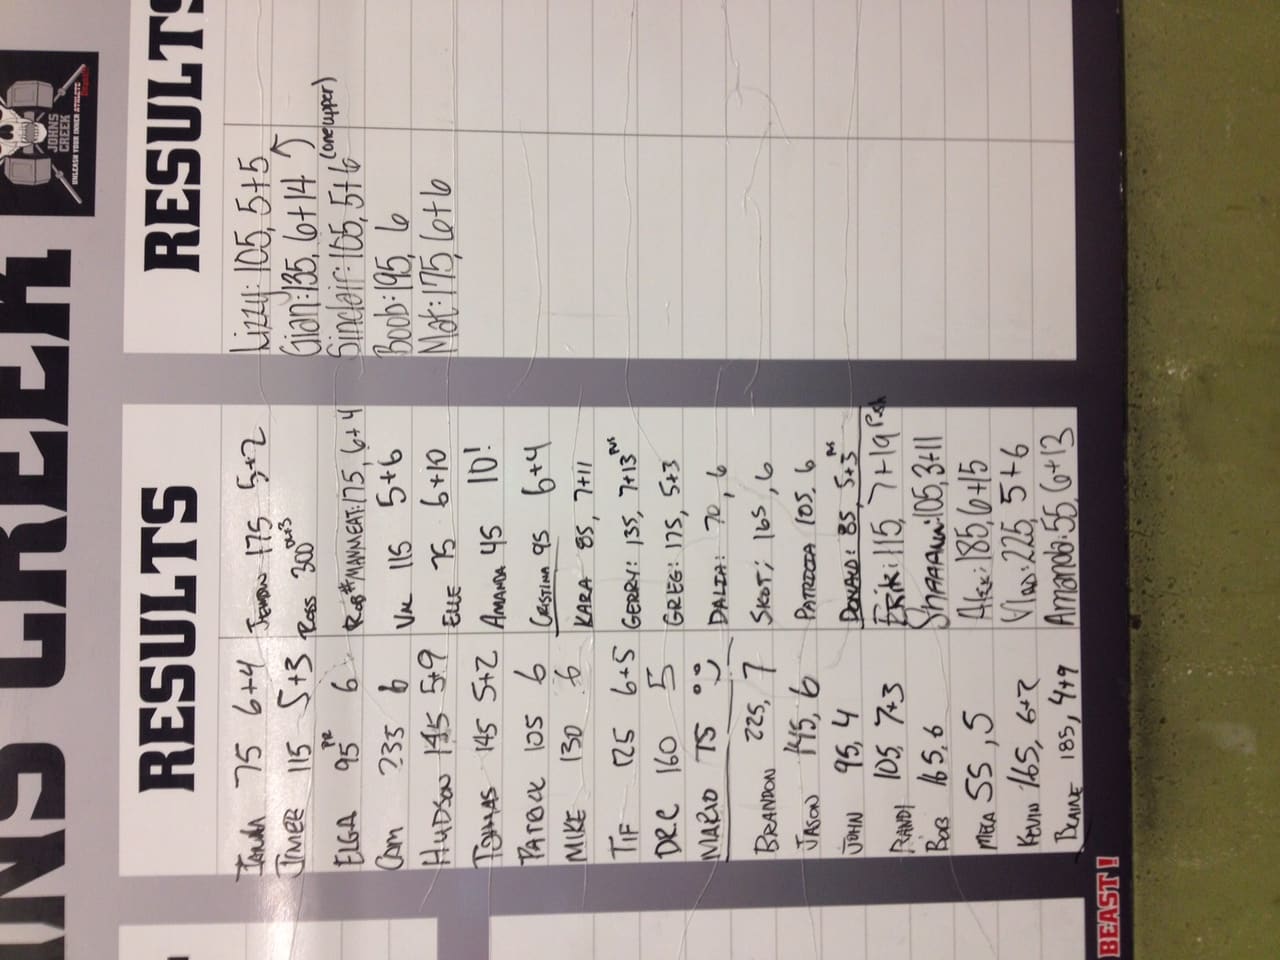 NS CREEK
JOHNS
CREEK
UNLEASH YOUR INNER ATHLETE
RESULTS
75 6+4
115 5+3
ELGA 95 PR 6
Cam 235 6
HUDSON 145 5+9
145 5+2
PATRICK 105 6
MIKE 130 6
TIF 125 6+5
DRC 160 5
MARIO TS
BRANDON 225, 7
JASON 145, 6
JOHN 95, 4
RANDI 105, 7+3
BOB 165, 6
55, 5
KEVIN 165, 6+2
BLAINE 185, 4+9
175 5+2
ROSS 300
ROB #MANMEAT: 175, 6+4
115 5+6
ELLE 75 6+10
AMANDA 45 10!
CRISTINA 95 6+4
KARA: 85, 7+11
GERRY: 135, 7+13
GREG: 175, 5+3
DALIA: 70, 6
SKOT: 165, 6
PATRICIA 105, 6
DONALD: 85, 5+3
ERIK: 115, 7+19
105, 3+11
Alex: 185, 6+15
VLAD: 225, 5+6
Amanda: 55, 6+13
RESULTS
Lizzy: 105, 5+5
Gian: 135, 6+14
Sinclair: 165, 5+6 (one upper)
Boob: 195, 6
Mat: 175, 6+6
BEAST!